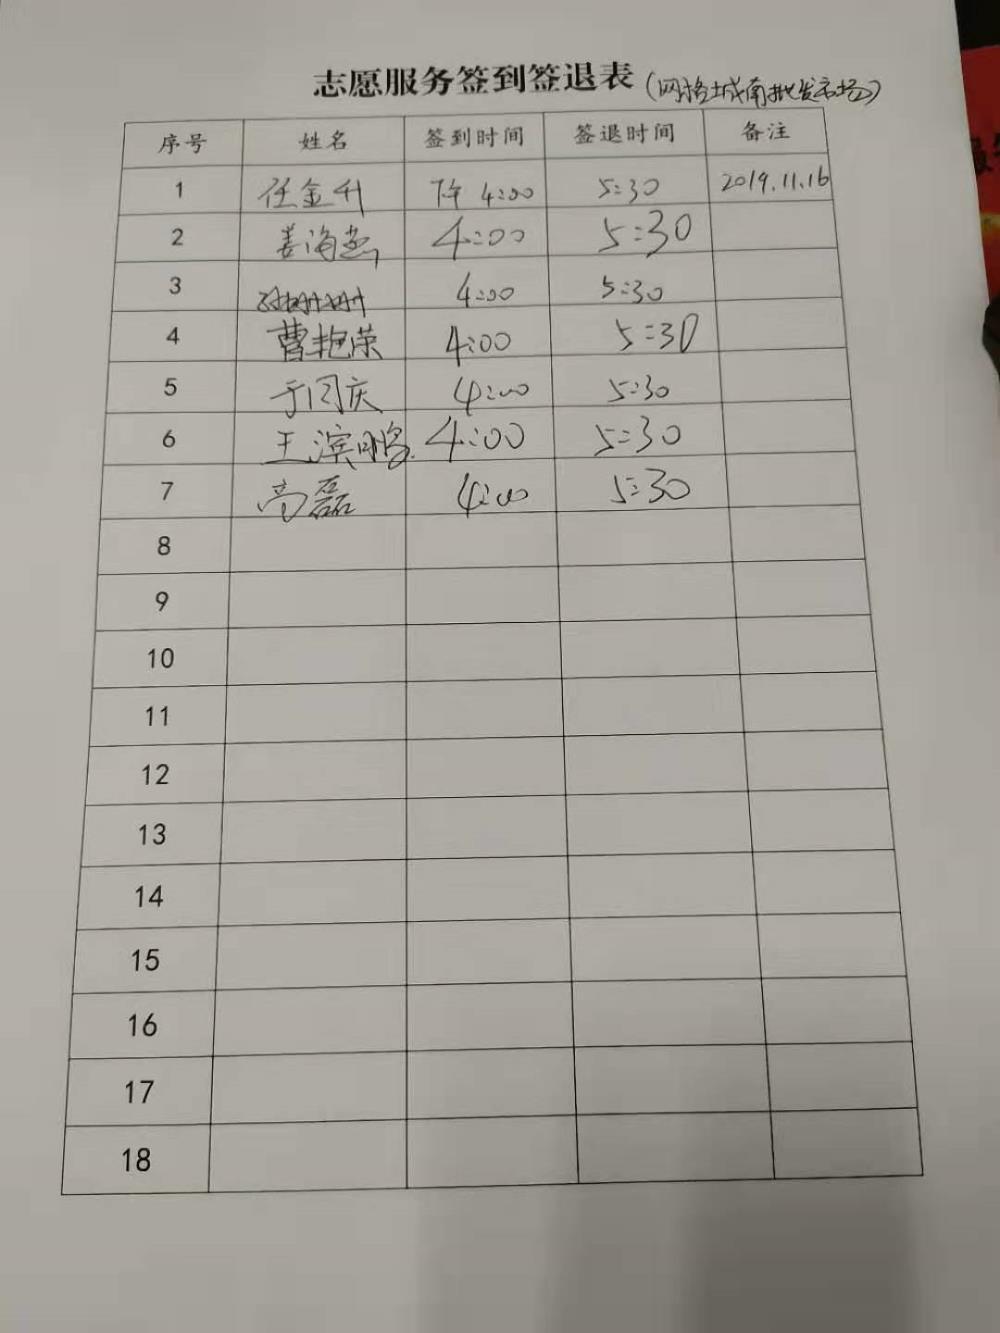 志愿服务签到签退表(网格城南批发市场)
序号 姓名 签到时间 签退时间 备注
1 任金升 下午 4:00 5:30 2019.11.16
2 姜海燕 4:00 5:30
3 4:00 5:30
4 曹艳荣 4:00 5:30
5 于闫庆 4:00 5:30
6 王滨鹏 4:00 5:30
7 高磊 4:00 5:30
8
9
10
11
12
13
14
15
16
17
18